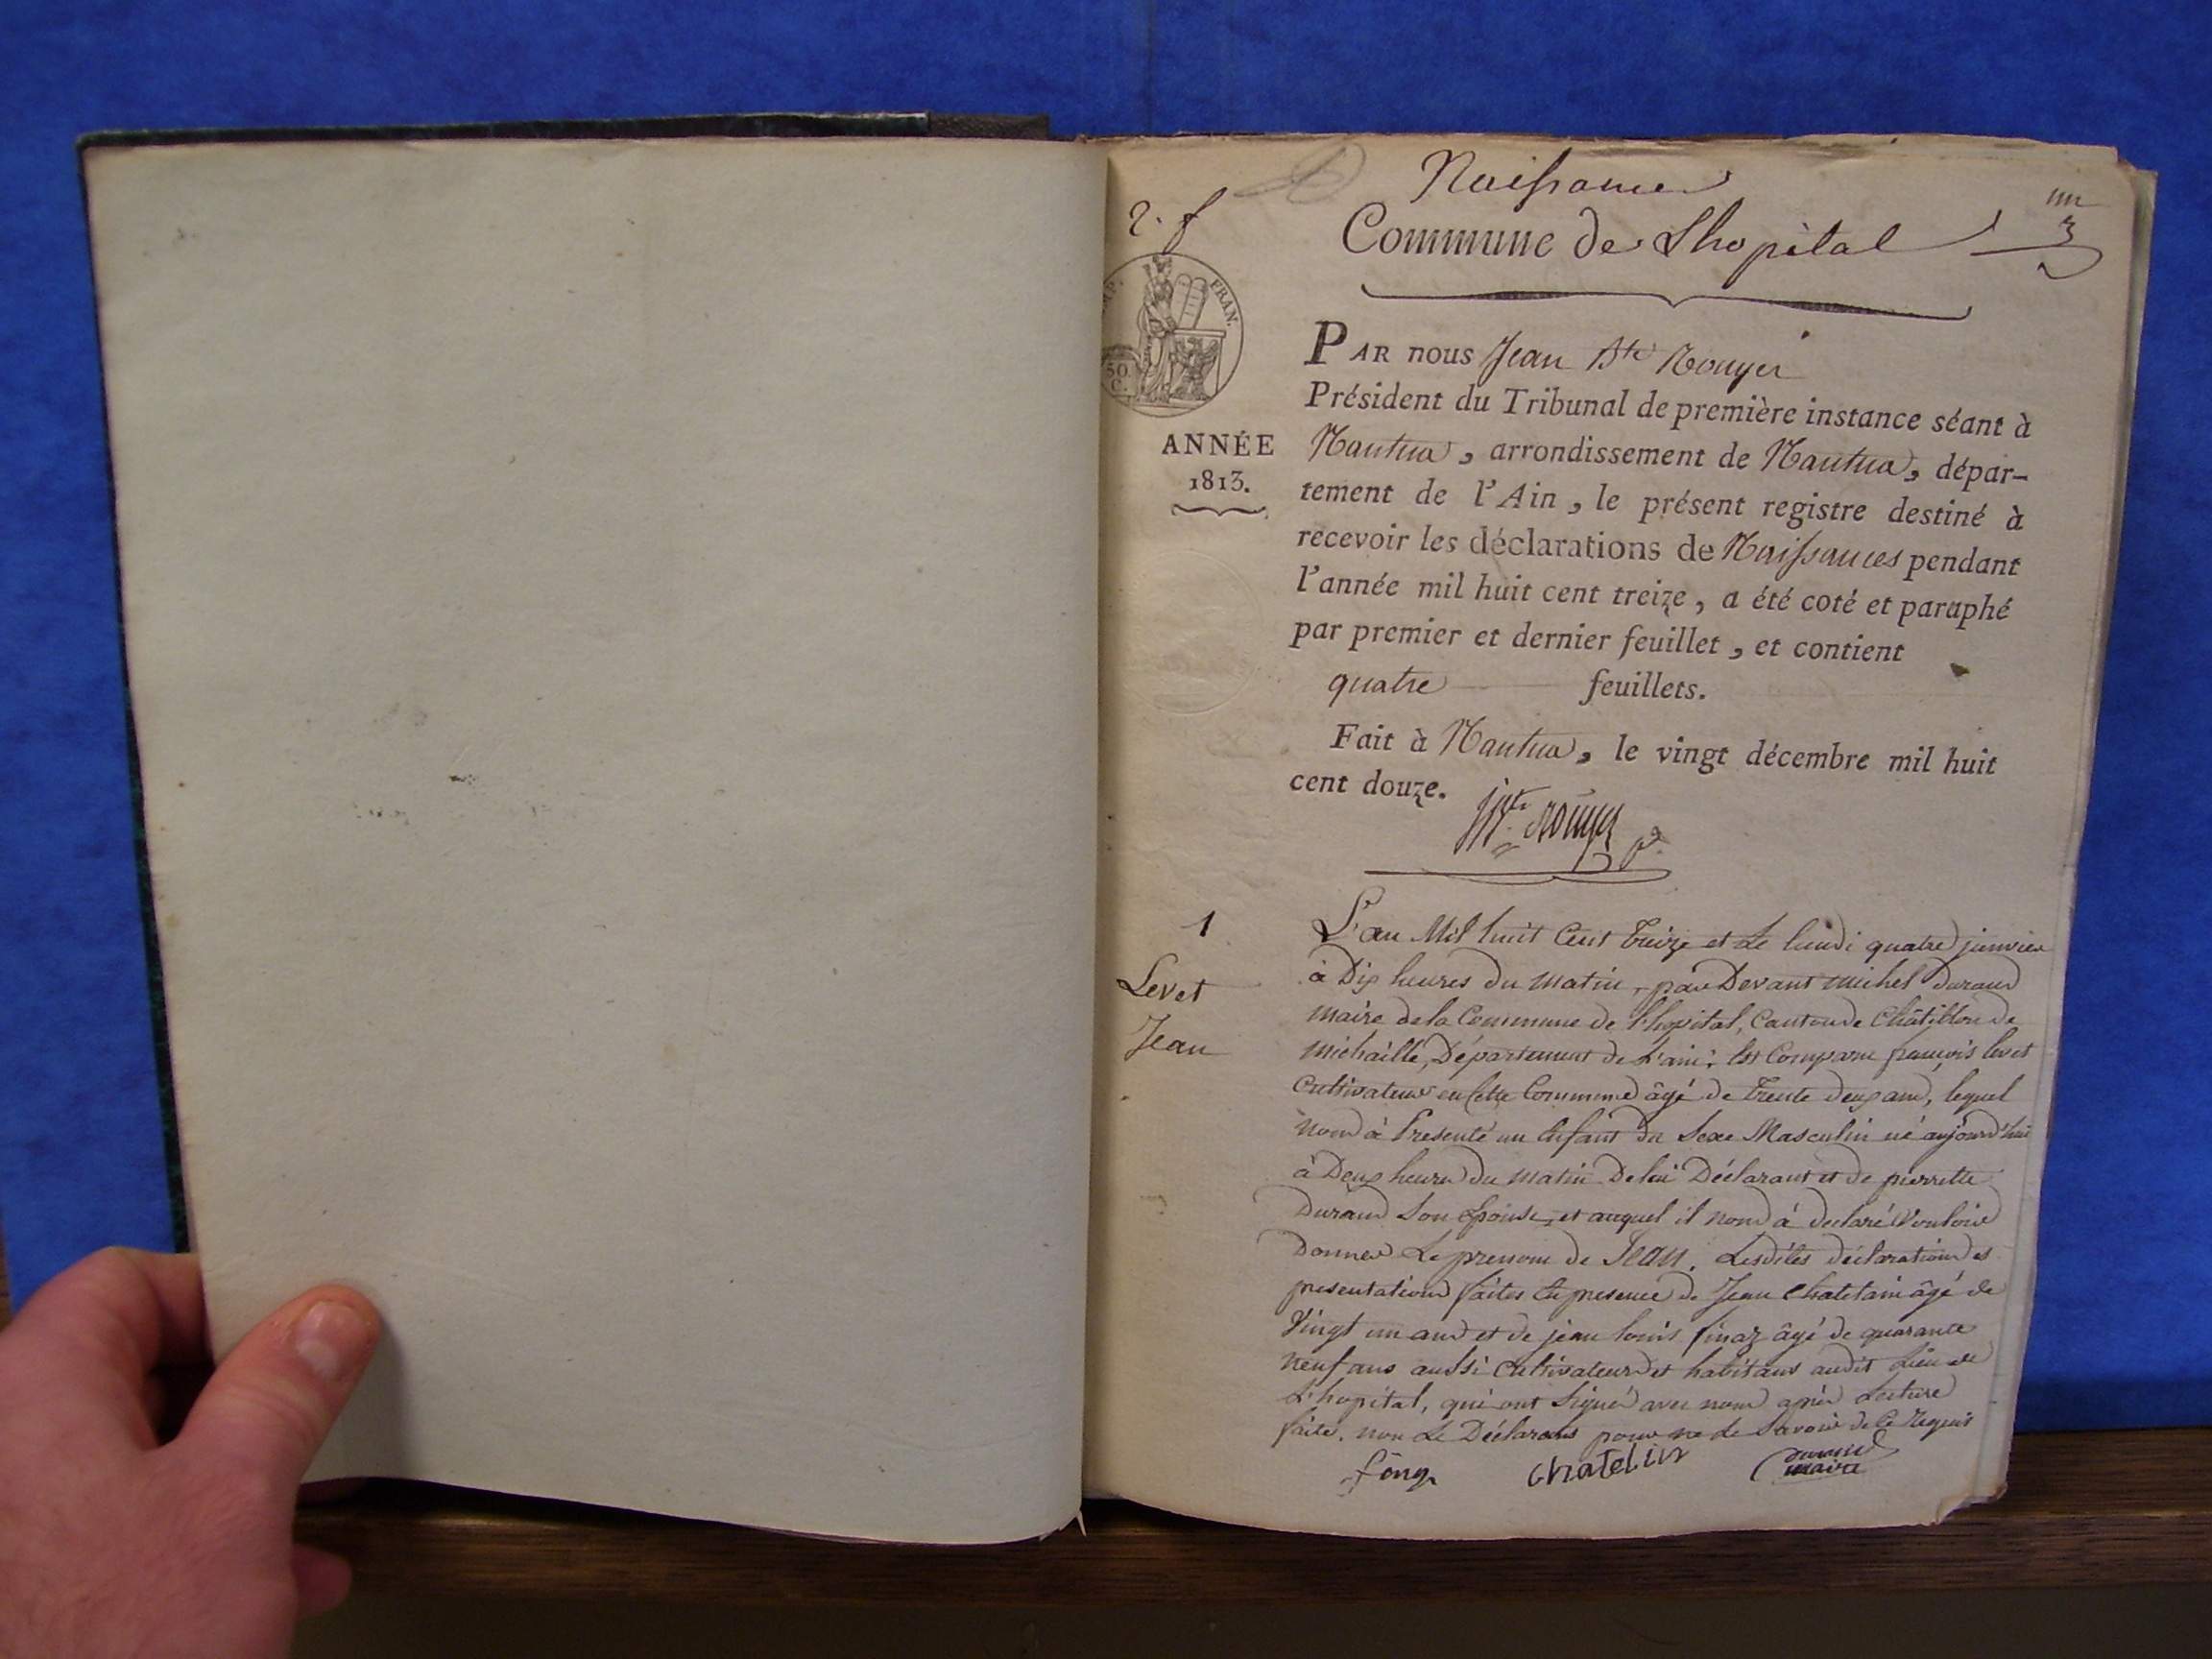 Naissances
Commune de Lhopital
2. f
un
3
FRAN.
50
C.
ANNÉE
1813.
PAR nous Jean Bte Rouyer
Président du Tribunal de première instance séant à
Nantua, arrondissement de Nantua, dépar-
tement de l'Ain, le présent registre destiné à
recevoir les déclarations de Naissances pendant
l'année mil huit cent treize, a été coté et paraphé
par premier et dernier feuillet, et contient
quatre feuillets.
Fait à Nantua, le vingt décembre mil huit
cent douze.
Rouyer
1
Levet
Jean
L'an Mil huit Cent Treize et Le lundi quatre janvier
à Dix heures du matin, par Devant michel Durand
maire de la Commune de l'hopital, Canton de Châtillon de
michaille, Département de L'ain; Est Comparu françois levet
Cultivateur en Cette Commune âgé de Trente deux ans, lequel
nous à Presenté un Enfant du Sexe Masculin né aujourd'hui
à Deux heures du matin De lui Déclarant et de pierrette
Durand Son Epouse, et auquel il nous à declaré Vouloir
Donner Le prenom de Jean. Lesdites déclarations et
presentations faites En presence de Jean Chatelain âgé de
Vingt un ans et de jean louis finaz âgé de quarante
neuf ans aussi Cultivateurs et habitans audit Lieu de
L'hopital, qui ont Signé avec nous après Lecture
faite, non Le Déclarant pour ne le Savoir de Ce Requis
Chatelin
Durand
maire